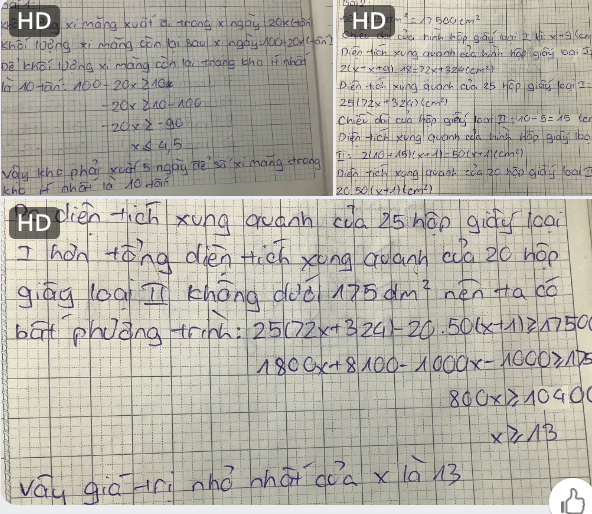 HD
xi măng xuất đi trong x ngày: 20x (tấn
khối lượng xi măng còn lại sau x ngày: 100-20x (tấn)
Để khối lượng xi măng còn lại trong kho ít nhất
là 10 tấn: 100-20x ≥ 10
-20x ≥ 10-100
-20x ≥ -90
x ≤ 4,5
Vậy kho phải xuất 5 ngày để số xi măng trong
kho ít nhất là 10 tấn
HD
= 17500cm²
Chiều dài của hình hộp giấy loại I là x+9 (cm
Diện tích xung quanh của hình hộp giấy loại I
2(x+x+9).18=72x+324(cm²)
Diện tích xung quanh của 25 hộp giấy loại I=
25(72x+324)(cm²)
Chiều dài của hộp giấy loại II: 10+5=15 (cm
Diện tích xung quanh của hình hộp giấy loại
II: 2(10+15)(x+1)=50(x+1)(cm²)
Diện tích xung quanh của 20 hộp giấy loại I
20.50(x+1)(cm²)
HD
diện tích xung quanh của 25 hộp giấy loại
I hơn tổng diện tích xung quanh của 20 hộp
giấy loại II không dưới 175dm² nên ta có
bất phương trình: 25(72x+324)-20.50(x+1)≥1750
1800x+8100-1000x-1000≥175
800x≥10400
x≥13
Vậy giá trị nhỏ nhất của x là 13